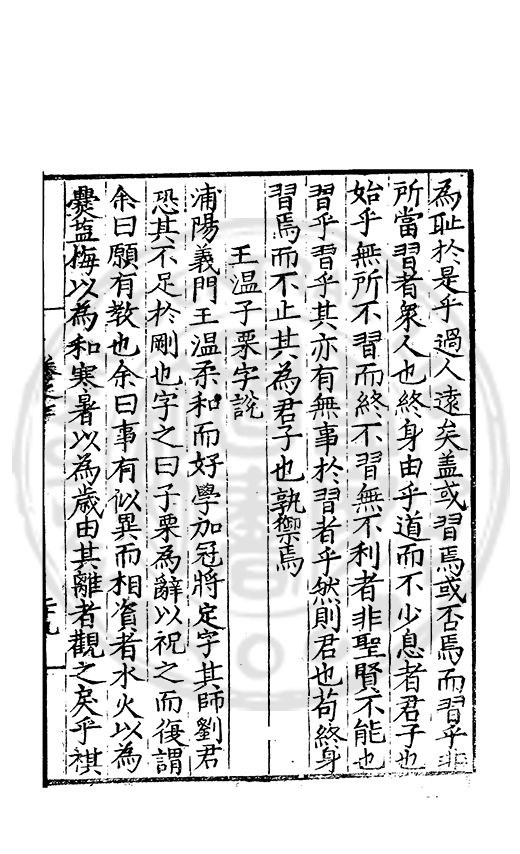 為恥於是乎過人遠矣蓋或習焉或否焉而習乎非
所當習者衆人也終身由乎道而不少息者君子也
始乎無所不習而終不習無不利者非聖賢不能也
習乎習乎其亦有無事於習者乎然則君也苟終身
習焉而不止其為君子也孰禦焉
王温子栗字說
浦陽義門王温柔和而好學加冠將定字其師劉君
恐其不足於剛也字之曰子栗為辭以祝之而復謂
余曰願有教也余曰事有似異而相資者水火以為
爨盐梅以為和寒暑以為歲由其離者觀之戾乎祺
二十九